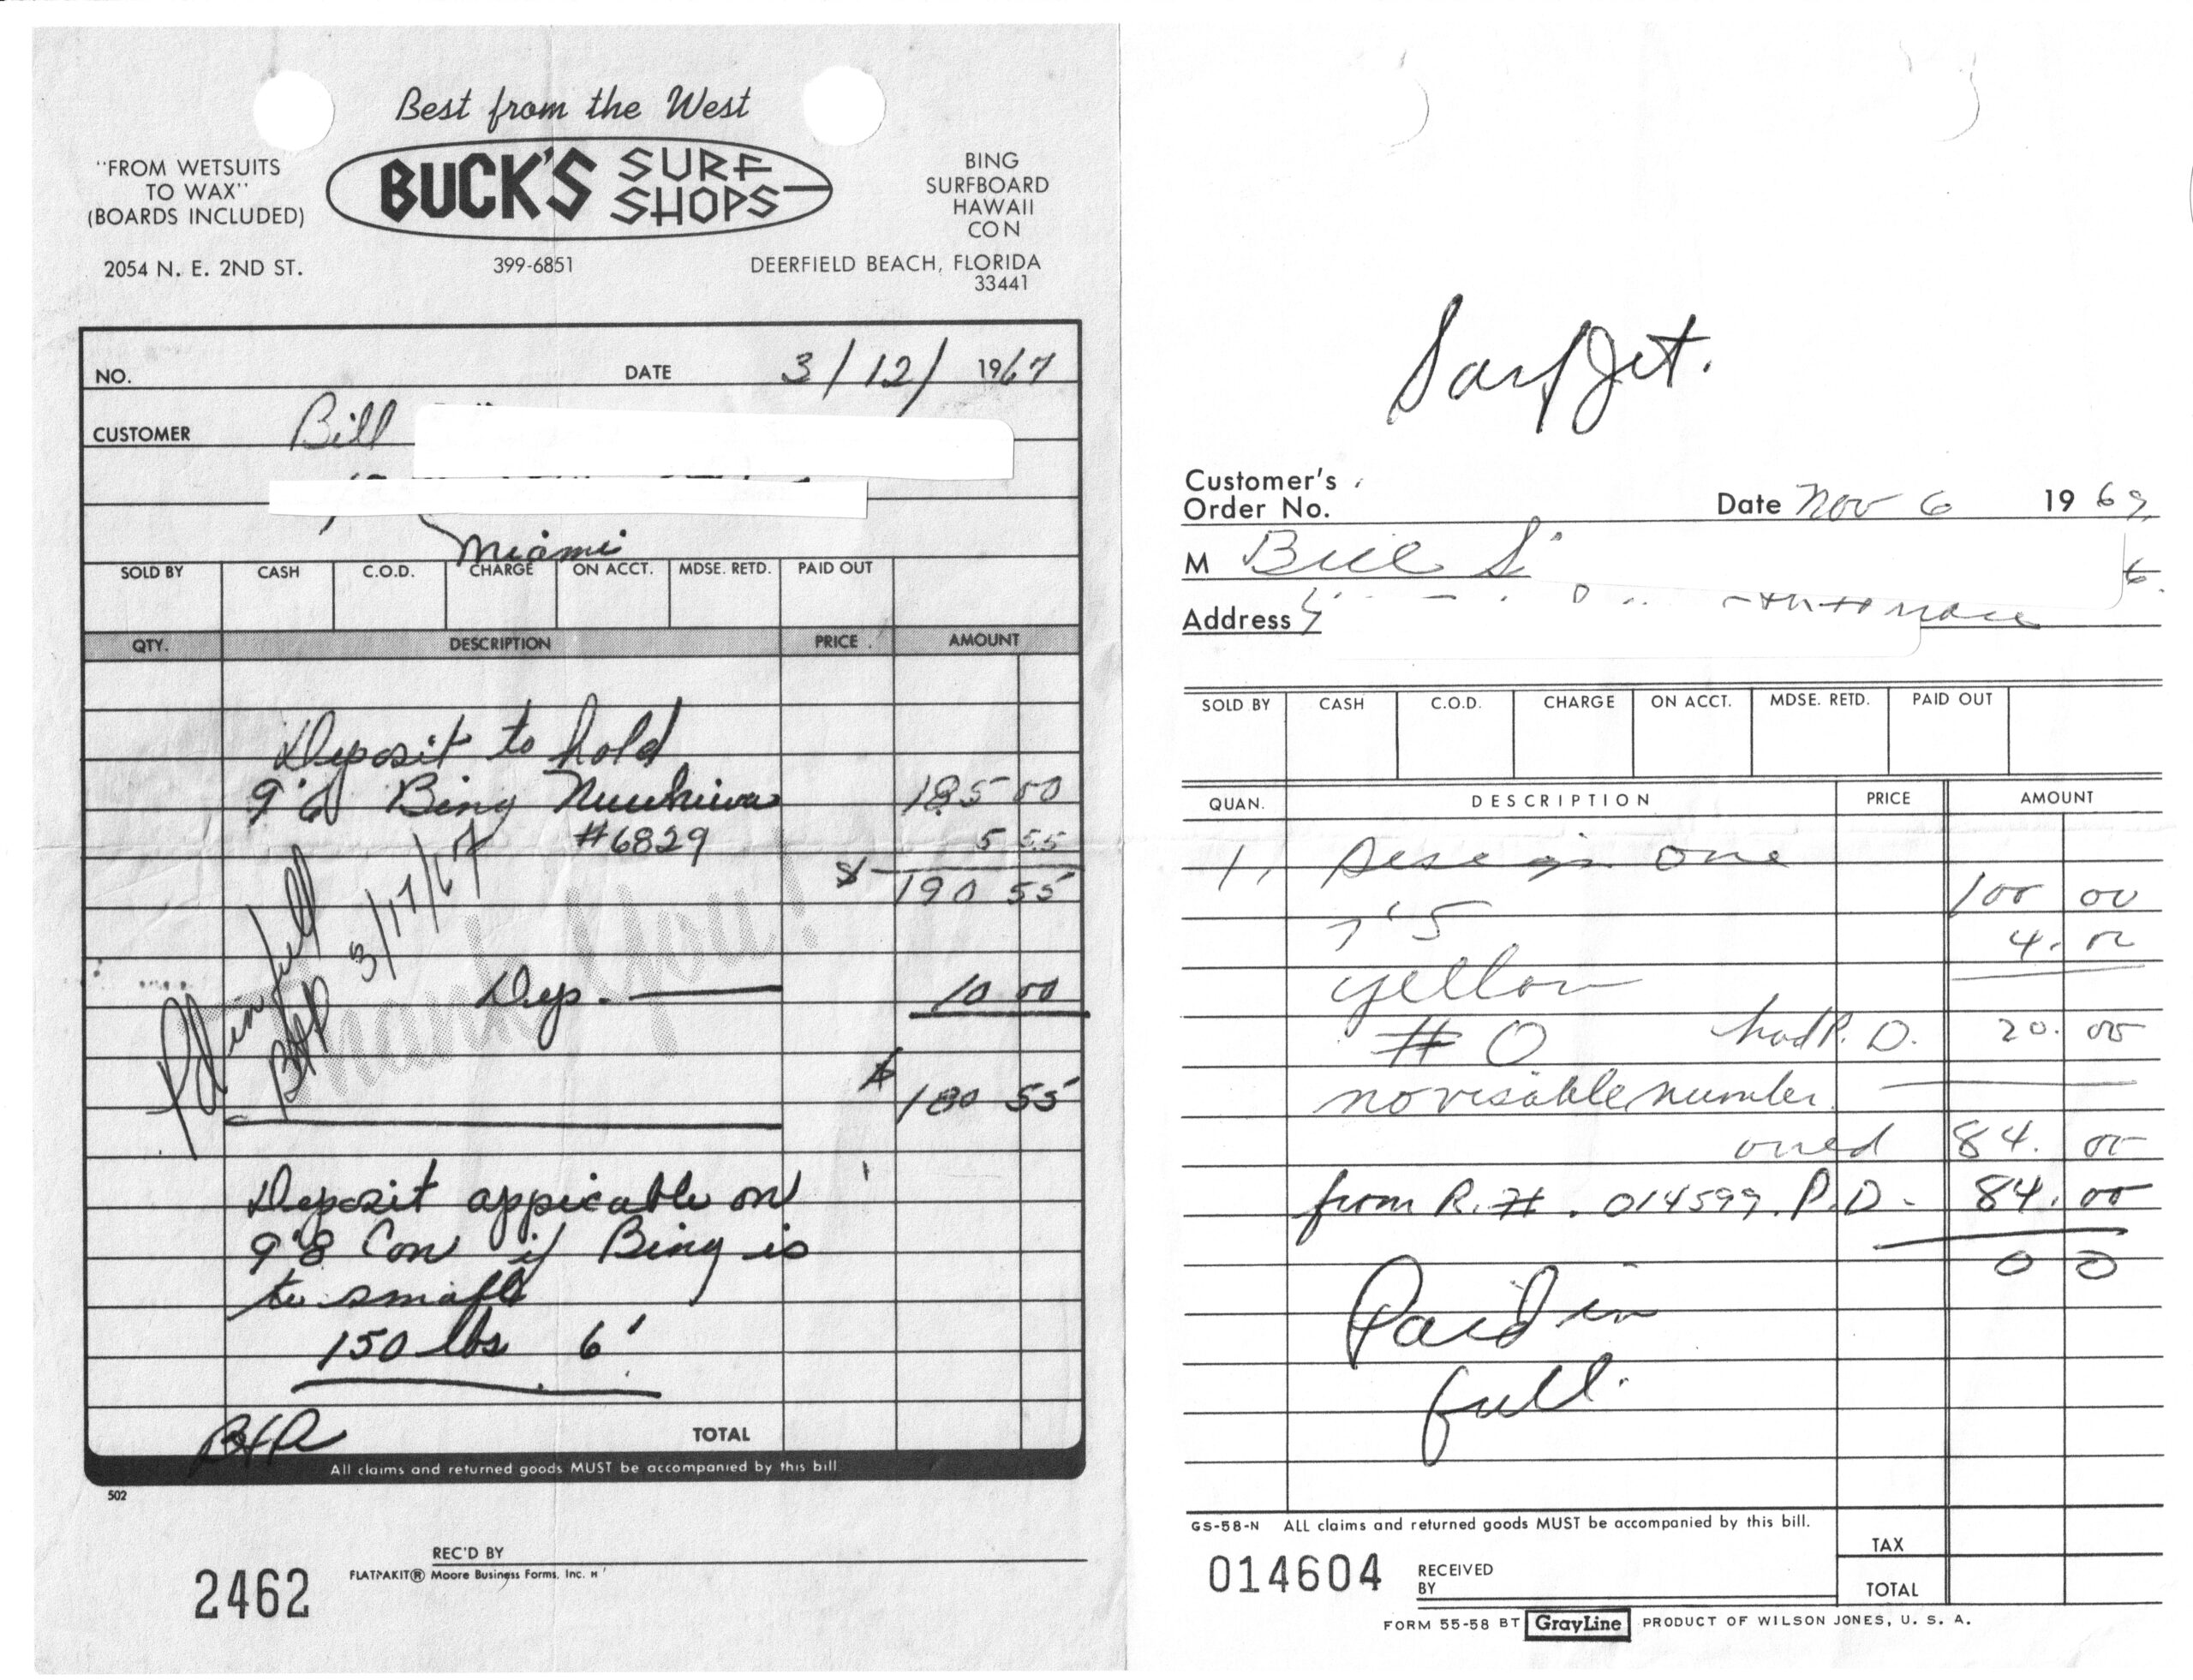 Best from the West
"FROM WETSUITS
TO WAX"
(BOARDS INCLUDED)
BUCK'S SURF
SHOPS
BING
SURFBOARD
HAWAII
CON
2054 N. E. 2ND ST.
399-6851
DEERFIELD BEACH, FLORIDA
33441
NO. DATE 3/12/ 1967
CUSTOMER Bill
Miami
SOLD BY CASH C.O.D. CHARGE ON ACCT. MDSE. RETD. PAID OUT
QTY. DESCRIPTION PRICE AMOUNT
Deposit to hold
9'6 Bing Nuuhiwa 185 00
#6829 5 55
$ 190 55
Thank You!
Dep. 10 00
Pd in full
BHP 3/17/67
$ 180 55
Deposit appicable on
9'8 Con if Bing is
to small
150 lbs 6'
TOTAL
All claims and returned goods MUST be accompanied by this bill
502
REC'D BY
2462
FLATPAKIT® Moore Business Forms, Inc.
Surf Jet.
Customer's
Order No. Date Nov 6 1969
M Bill S
Address
SOLD BY CASH C.O.D. CHARGE ON ACCT. MDSE. RETD. PAID OUT
QUAN. DESCRIPTION PRICE AMOUNT
1, Design one 100 00
7'5 4. 00
yellow
# 0 had P. D. 20. 00
no visable number
owed 84. 00
from R. #. 014599. P.D. - 84. 00
0 0
Paid in
full.
GS-58-N ALL claims and returned goods MUST be accompanied by this bill.
TAX
014604 RECEIVED
BY
TOTAL
FORM 55-58 BT GrayLine PRODUCT OF WILSON JONES, U. S. A.